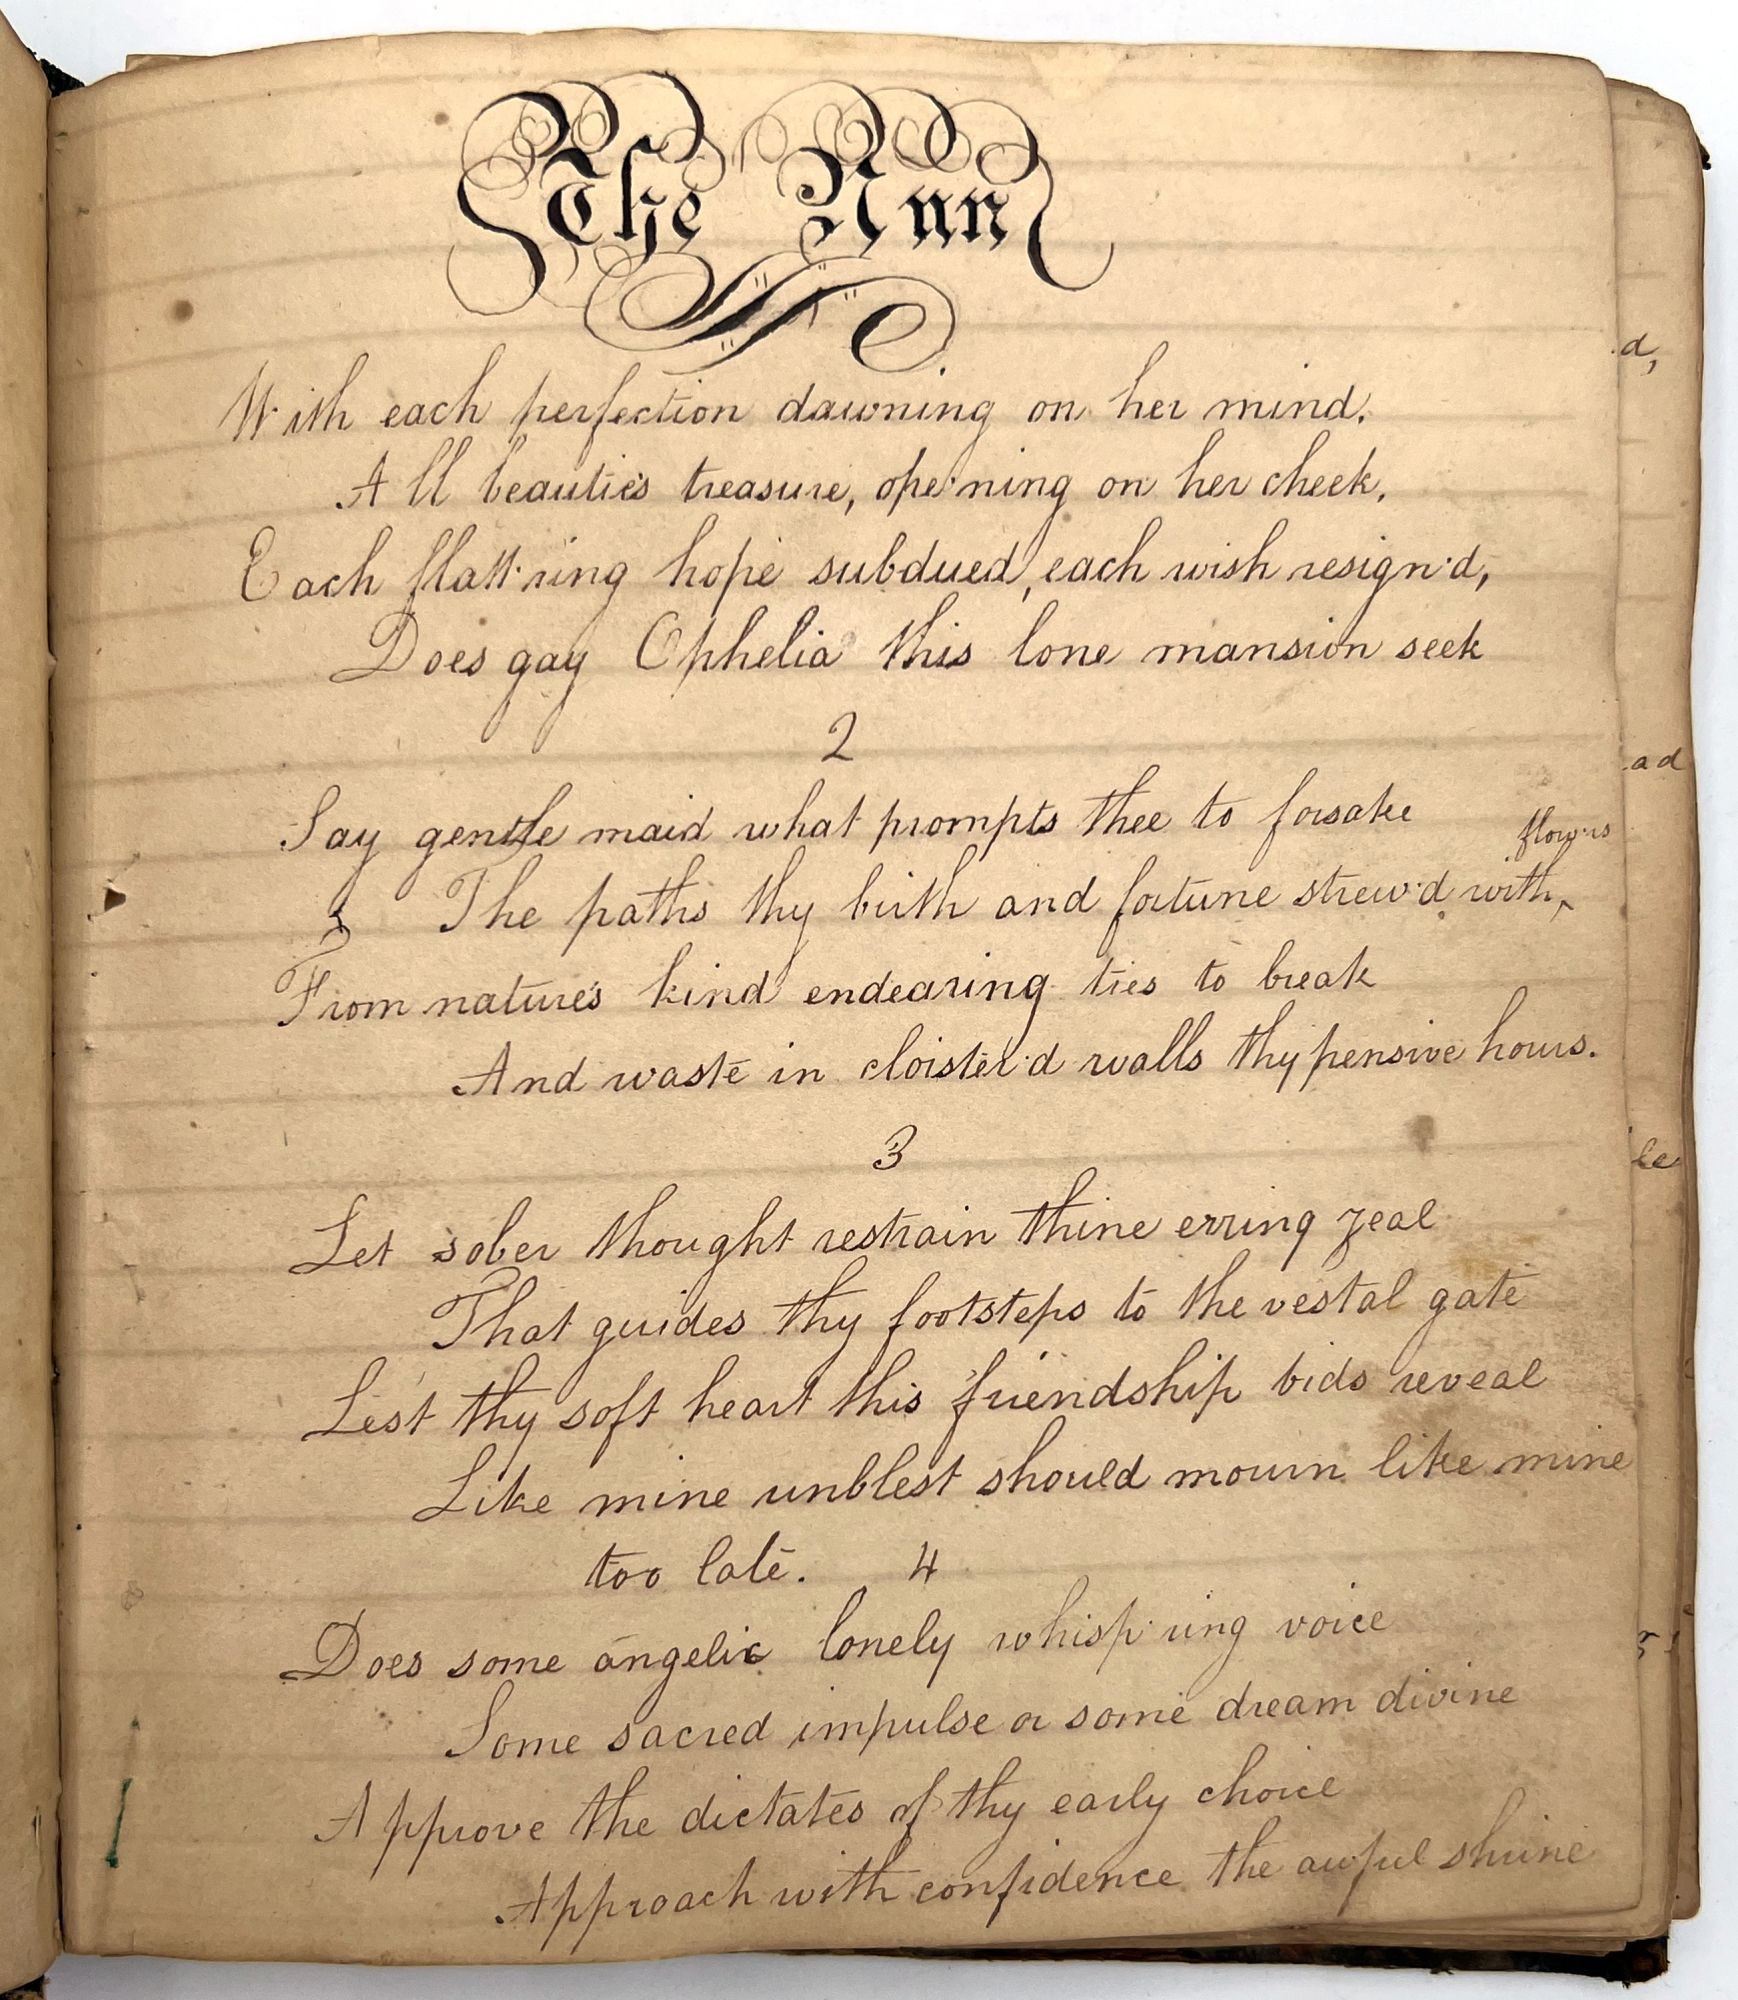 The Nun
With each perfection dawning on her mind.
All beautie's treasure, ope'ning on her cheek.
Each flatt'ring hope subdued, each wish resign'd,
Does gay Ophelia this lone mansion seek
2
Say gentle maid what prompts thee to forsake
flow'rs
The paths thy birth and fortune strew'd with‸
From nature's kind endearing ties to break
And waste in cloister'd walls thy pensive hours.
3
Let sober thought restrain thine erring zeal
That guides thy footsteps to the vestal gate
Lest thy soft heart this friendship bids reveal
Like mine unblest should mourn like mine
too late. 4
Does some angelic lonely whisp'ring voice
Some sacred impulse or some dream divine
Approve the dictates of thy early choice
Approach with confidence the awful shrine
d,
ad
le